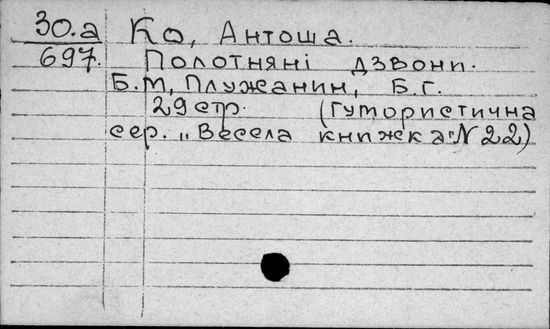 30.а Ко, Антоша.
697. Полотняні дзвони.
Б.М, Плужанин, Б.Г.
29 стр. (Гумористична
сер. „Весела книжка" N 22)